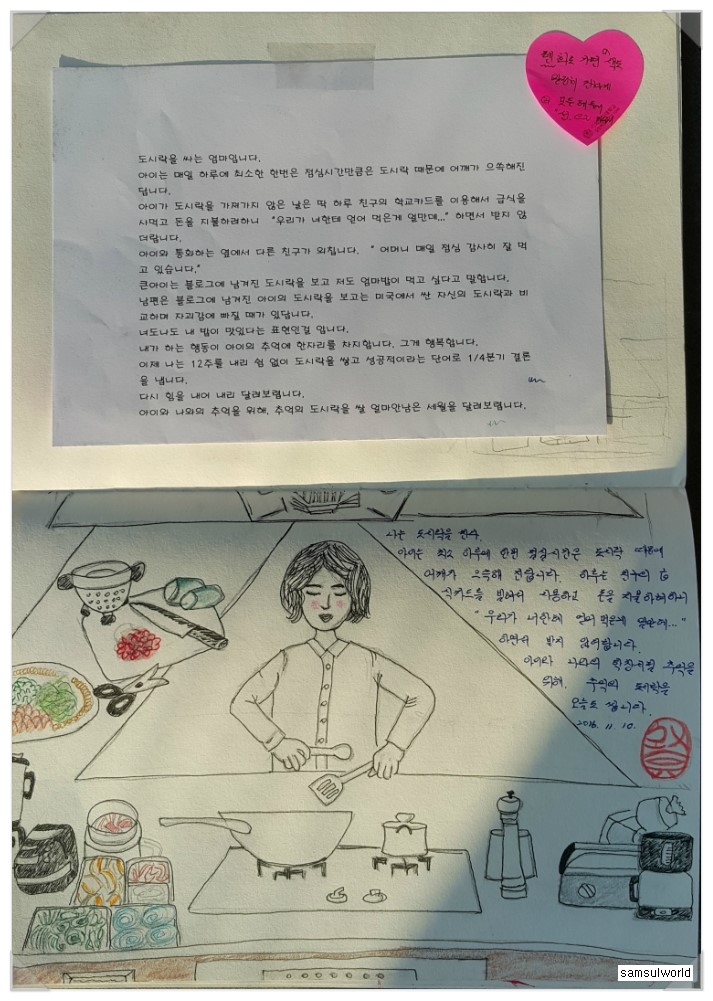 도시락을 싸는 엄마입니다.
아이는 매일 하루에 최소한 한번은 점심시간만큼은 도시락 때문에 어깨가 으쓱해진
답니다.
아이가 도시락을 가져가지 않은 날은 딱 하루 친구의 학교카드를 이용해서 급식을
사먹고 돈을 지불하려하니 "우리가 너한테 얻어 먹은게 얼만데..." 하면서 받지 않
더랍니다.
아이와 통화하는 옆에서 다른 친구가 외칩니다. " 어머니 매일 점심 감사히 잘 먹
고 있습니다."
큰아이는 블로그에 남겨진 도시락을 보고 저도 엄마밥이 먹고 싶다고 말합니다.
남편은 블로그에 남겨진 아이의 도시락을 보고는 미국에서 싼 자신의 도시락과 비
교하며 자괴감에 빠질 때가 있답니다.
너도나도 내 밥이 맛있다는 표현인걸 압니다.
내가 하는 행동이 아이의 추억에 한자리를 차지합니다. 그게 행복합니다.
이제 나는 12주를 내리 쉼 없이 도시락을 쌓고 성공적이라는 단어로 1/4분기 결론
을 냅니다.
다시 힘을 내어 내리 달려보렵니다.
아이와 나와의 추억을 위해, 추억의 도시락을 쌀 얼마안남은 세월을 달려보렵니다.
나는 도시락을 싼다.
아이는 최소 하루에 한번 점심시간은 도시락 때문에
어깨가 으쓱해 진답니다. 하루는 친구의 급
식카드를 빌려서 사용하고 돈을 지불하려하니
"우리가 너한테 얻어 먹은게 얼만데..."
하면서 받지 않더랍니다.
아이와 나와의 학창시절 추억을
위해. 추억의 도시락을
오늘도 쌉니다.
2016. 11. 10.
samsulworld